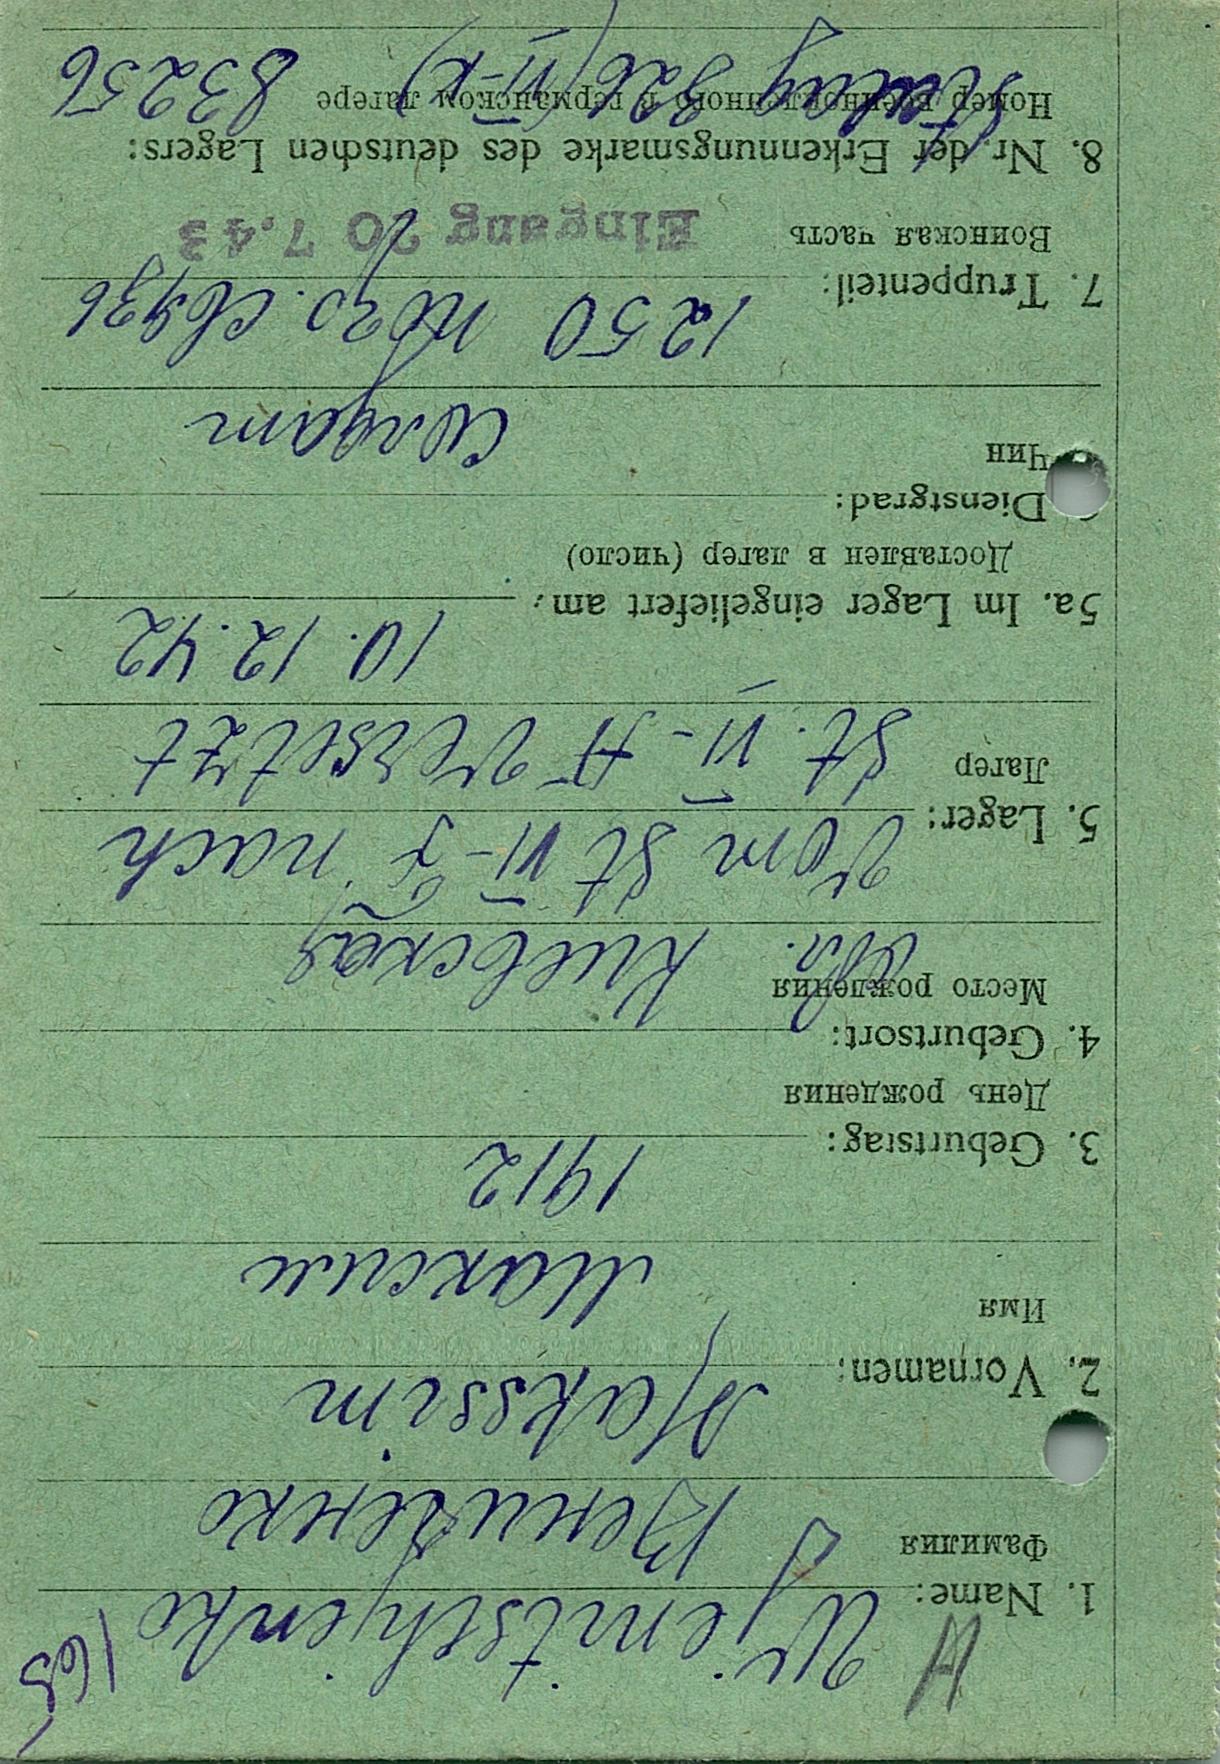 165
A
1. Name: Wjenitschjenko
Фамилия Вениченко
2. Vornamen: Makssim
Имя Максим
3. Geburtstag: 1912
День рождения
4. Geburtsort:
Место рождения обл. Киевская
5. Lager: Vom St VI-F nach
Лагер St. VI-A versetzt
5a. Im Lager eingeliefert am: 10.12.42
Доставлен в лагер (число)
Dienstgrad:
Чин солдат
7. Truppenteil: 1250
Воинская часть Eingang 20 7.43
8. Nr. der Erkennungsmarke des deutschen Lagers:
Номер военнопленного в германском лагере
Stalag 326 (VI-K) 83256